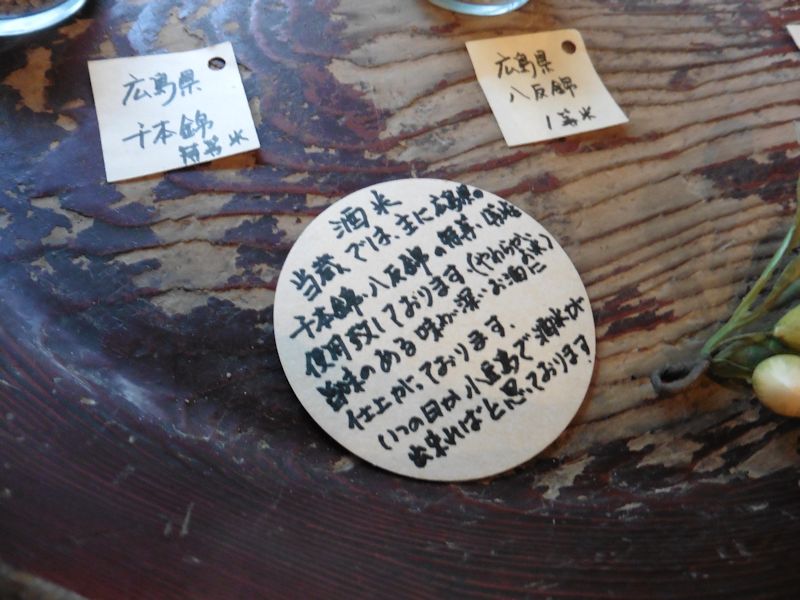 広島県
千本錦
特等米
広島県
八反錦
1等米
酒米
当蔵では、主に広島県の
千本錦・八反錦の特等、1等米
使用致しております。(やわらかいお米)
旨味のある味が深いお酒に
仕上がっております。
いつの日か小豆島で酒米が
出来ればと思っております。